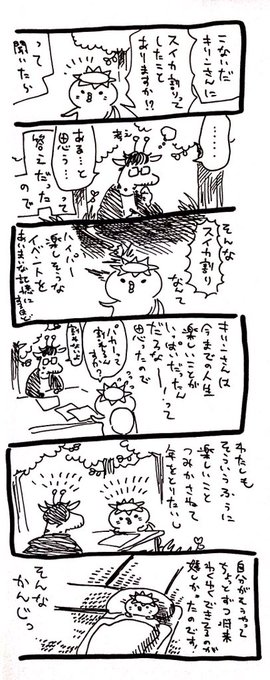 こないだ
キリンさんに
スイカ割りって
したこと
ありますか!?
って
聞いたら
………
考え
ある…と
思う…
って
答えだった
ので
そんな
スイカ割り
なんて
ハイパー
楽しそうな
イベントを
あいまいな記憶に
キリンさんは
今までの人生
楽しいことが
いっぱいだったん
だろな
ーー!って
思ったので
わたしも
そういうふうに
楽しいこと
つみかさねて
年をとりたいし
自分がそうやって
ちょっとずつ将来
わくわくできてるのが
嬉しかったのです。
そんな
かんじっ